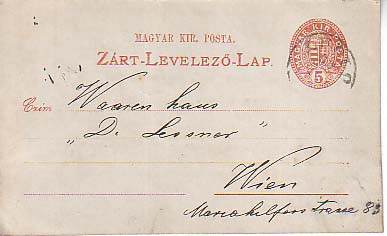 MAGYAR KIR. POSTA.
ZÁRT-LEVELEZŐ-LAP.
Czim
Waaren haus
"D. Lessner"
Wien
Mariahelferstrasse 83
MAGYAR KIR. POSTA
5